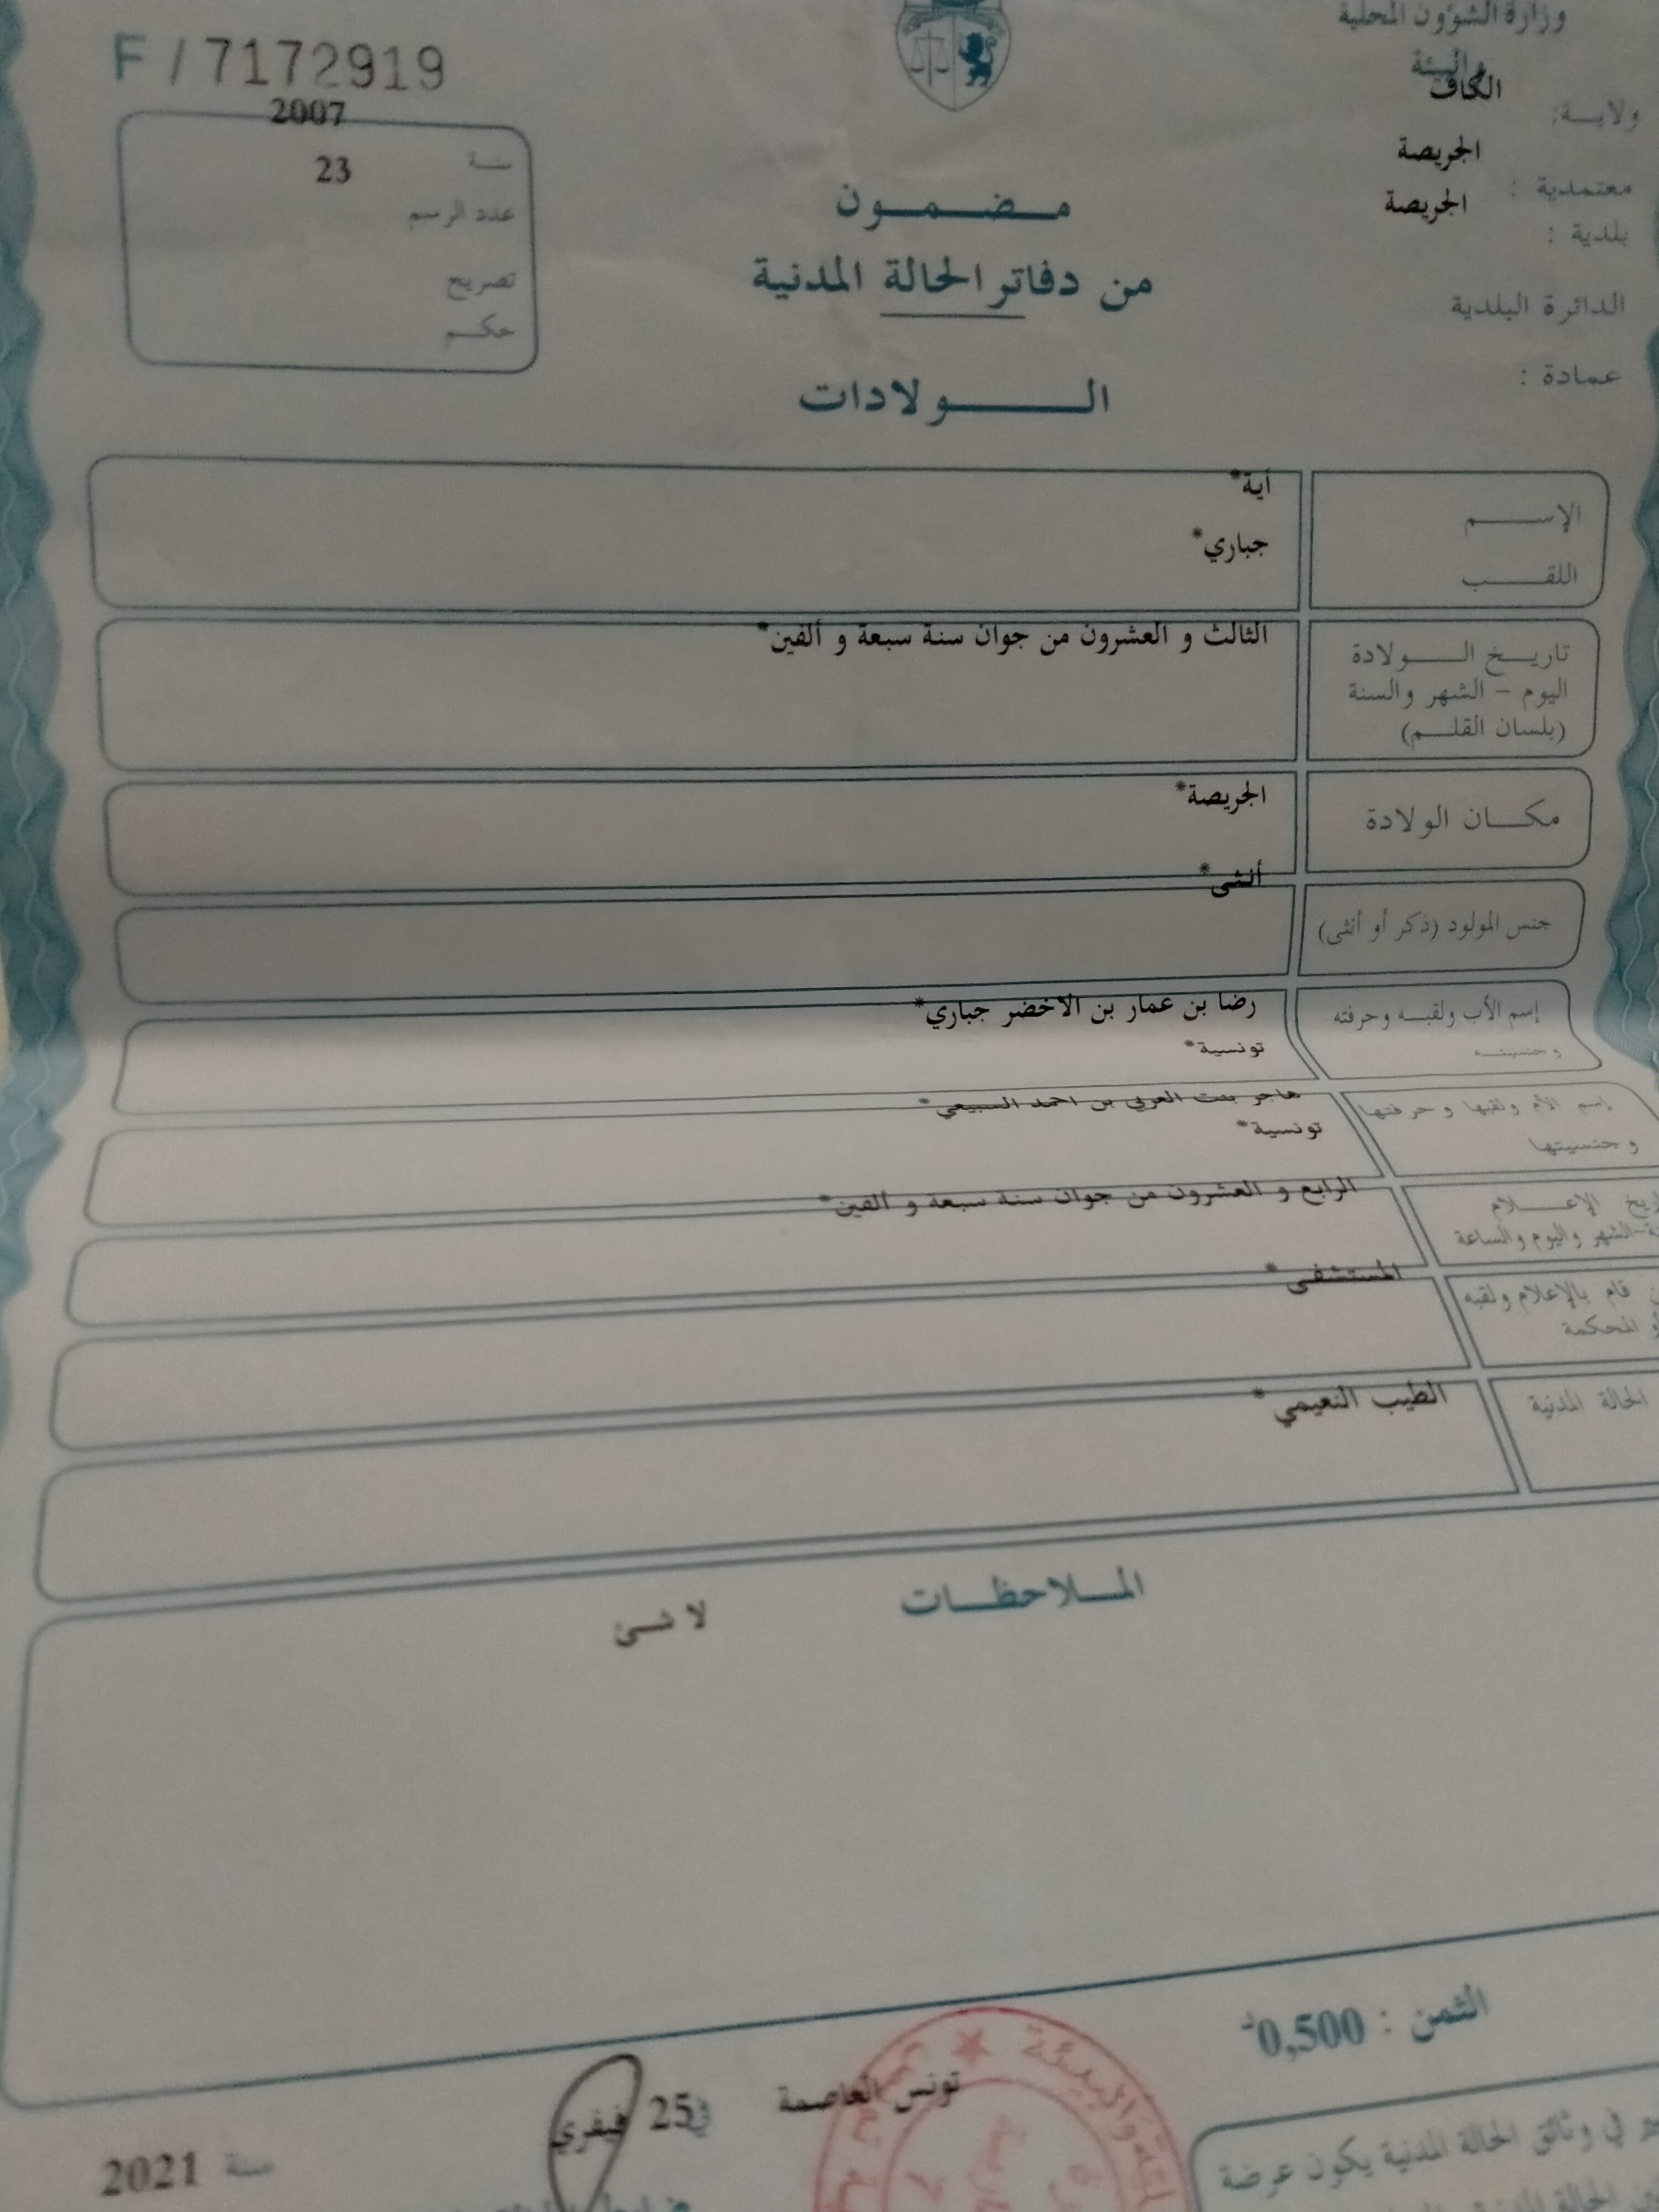 وزارة الشؤون المحلية
والبيئة
ولاية: الكاف
معتمدية : الجريصة
بلدية : الجريصة
الدائرة البلدية
عمادة :
F / 7172919
سنة 2007
عدد الرسم 23
تصريح
حكم
مضمون
من دفاتر الحالة المدنية
الولادات
الإسم آية*
اللقب جباري*
تاريخ الولادة
اليوم - الشهر والسنة
(بلسان القلم)
الثالث و العشرون من جوان سنة سبعة و ألفين*
مكان الولادة الجريصة*
جنس المولود (ذكر أو أنثى) أنثى*
إسم الأب ولقبه وحرفته رضا بن عمار بن الاخضر جباري*
وجنسيته تونسية*
إسم الأم ولقبها وحرفتها هاجر بنت العربي بن احمد السبيعي*
وجنسيتها تونسية*
الإعلام
الشهر واليوم والساعة
الرابع و العشرون من جوان سنة سبعة و ألفين*
قام بالإعلام ولقبه المستشفى*
المحكمة
الحالة المدنية الطيب النعيمي*
الملاحظات
لا شئ
الثمن : 0,500د
تونس العاصمة في 25 فيفري سنة 2021
في وثائق الحالة المدنية يكون عرضة
والبيئة